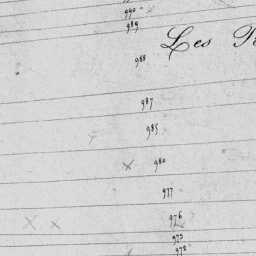 990
989
Les
988
987
985
980
977
976
975
972